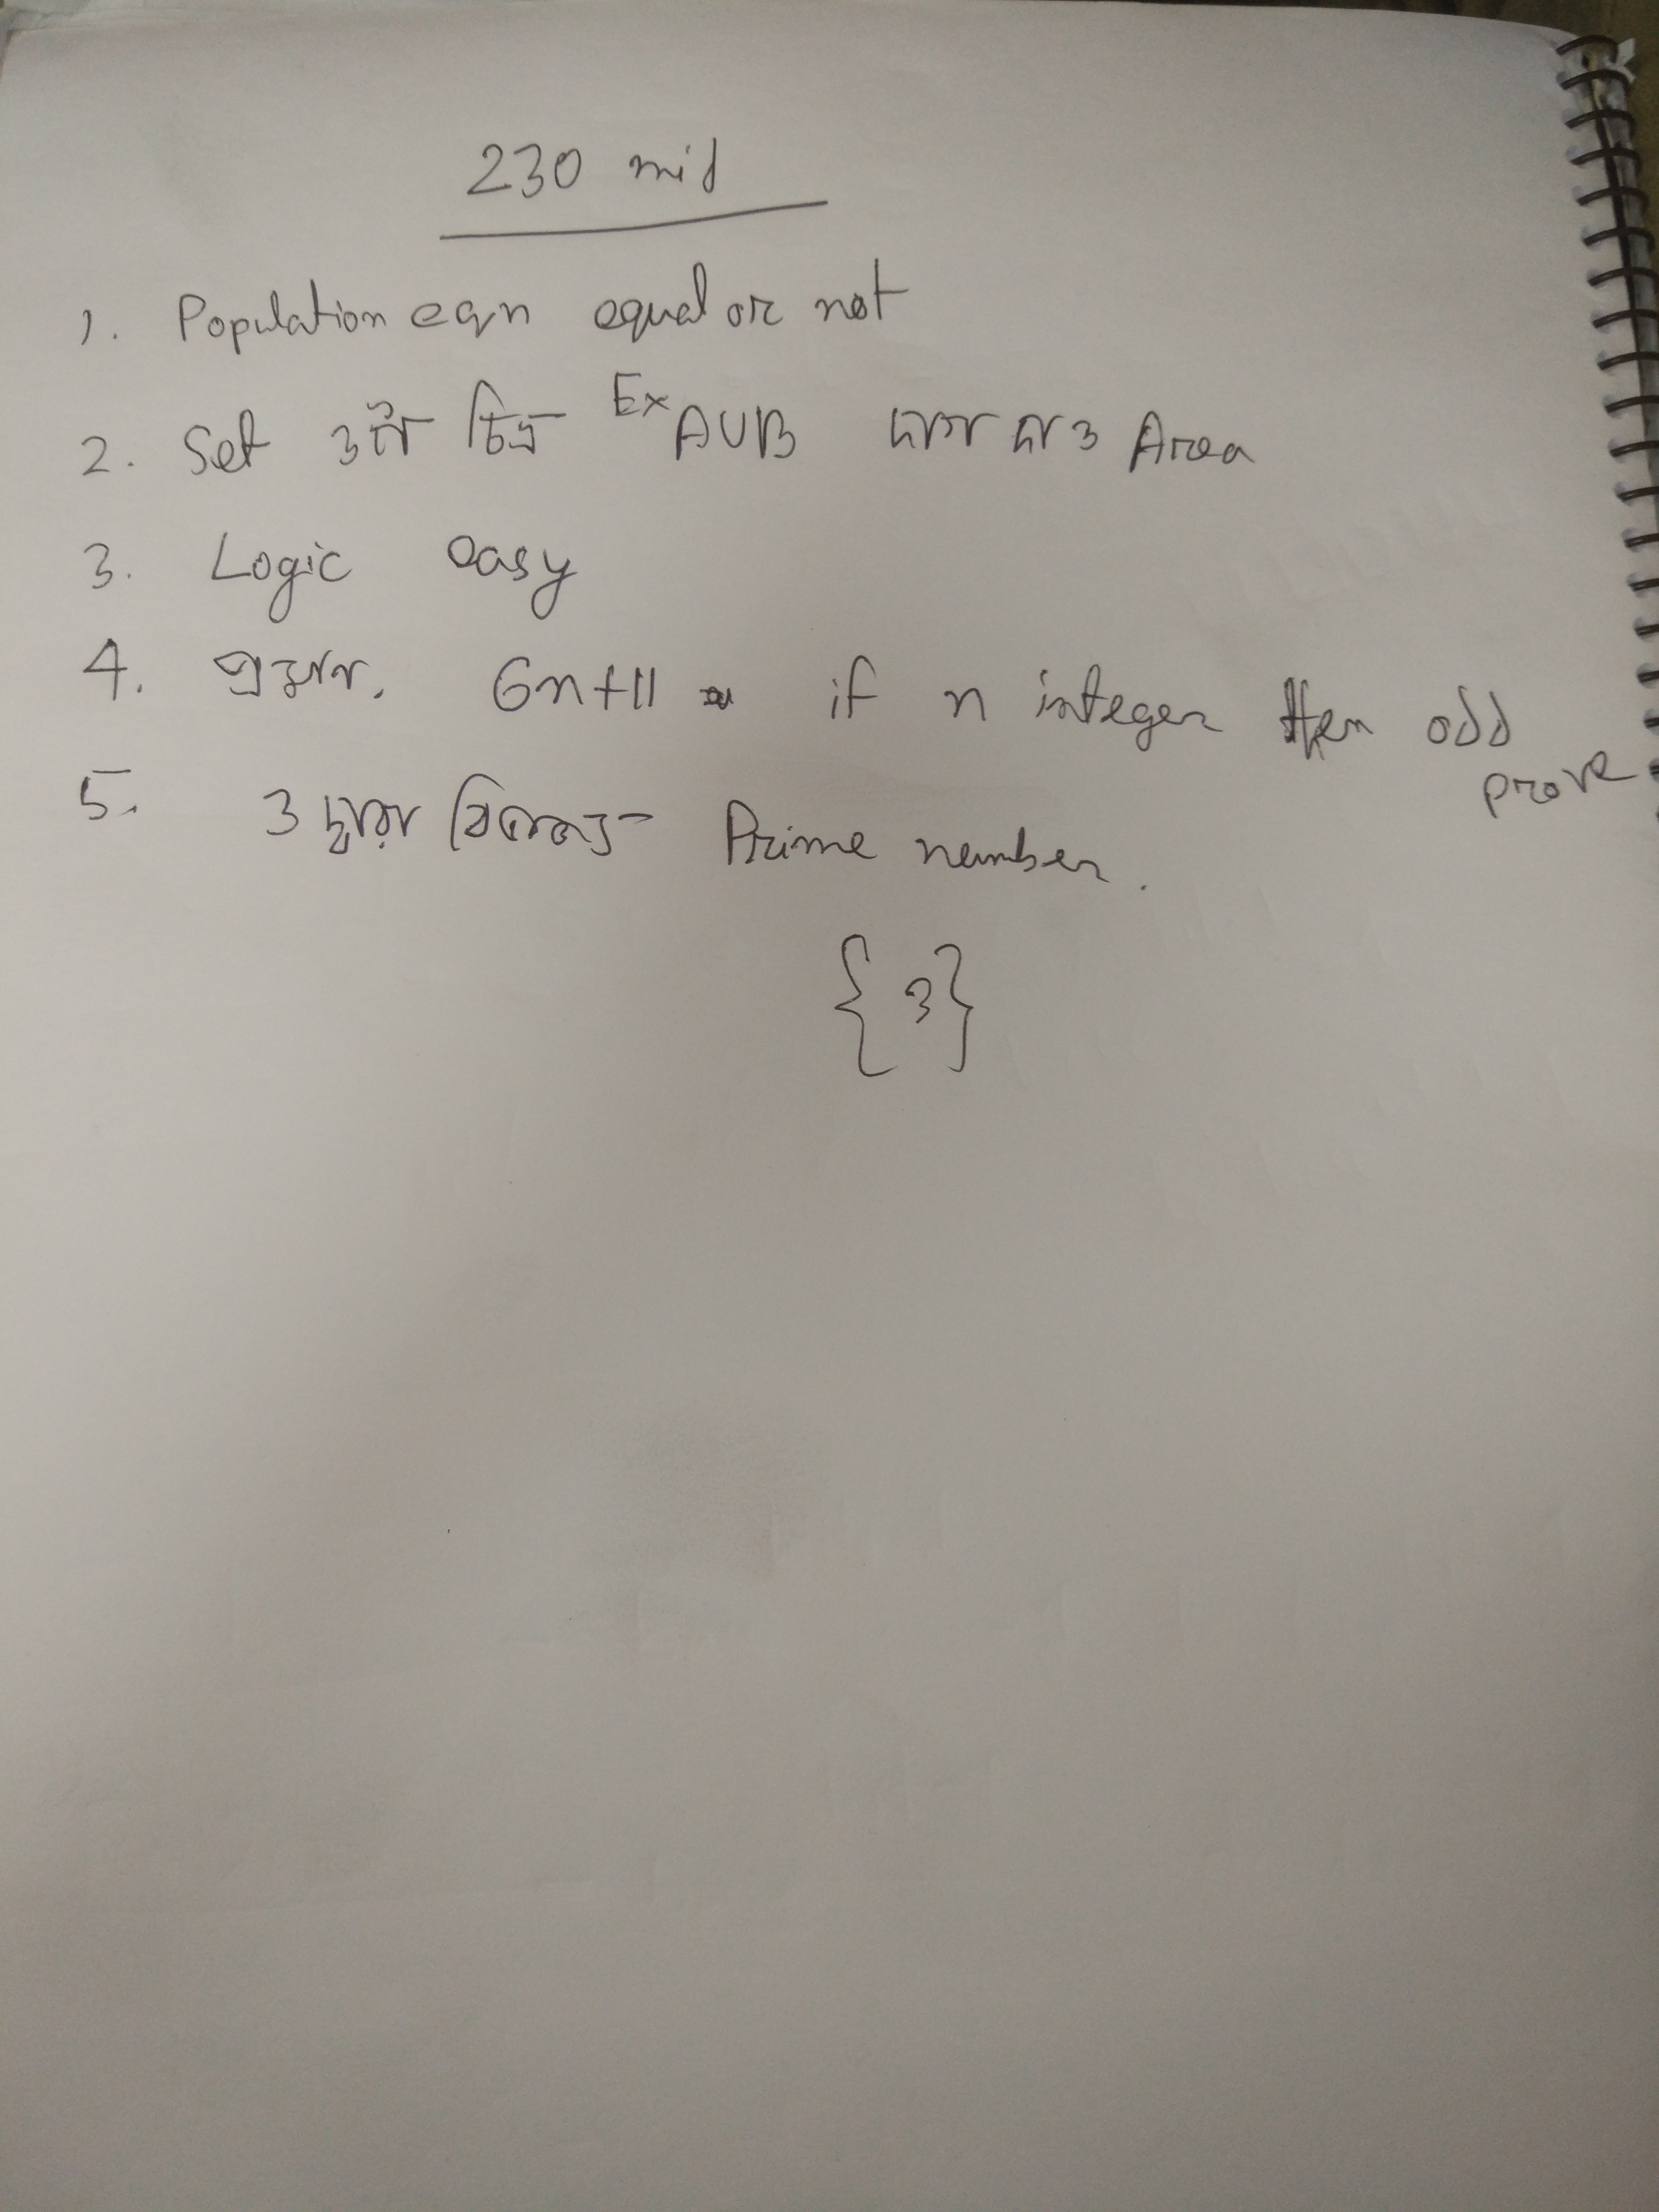 230 mid
1. Population eqn equal or not
2. Set ৩টা চিত্র Ex AUB দাগ দাও Area
3. Logic easy
4. প্রমান. 6n+11 if n integer then odd prove
5. ৩ দ্বারা বিভাজ্য Prime number.
{3}